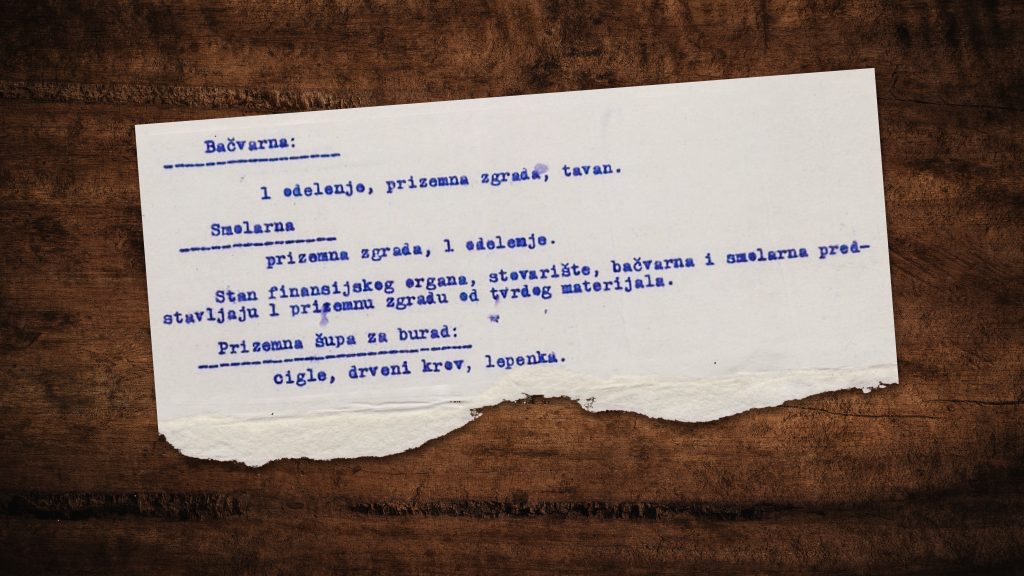 Bačvarna:
1 odelenje, prizemna zgrada, tavan.
Smolarna
prizemna zgrada, 1 odelenje.
Stan finansijskog organa, stovarište, bačvarna i smolarna pred-
stavljaju 1 prizemnu zgradu od tvrdog materijala.
Prizemna šupa za burad:
cigle, drveni krov, lepenka.